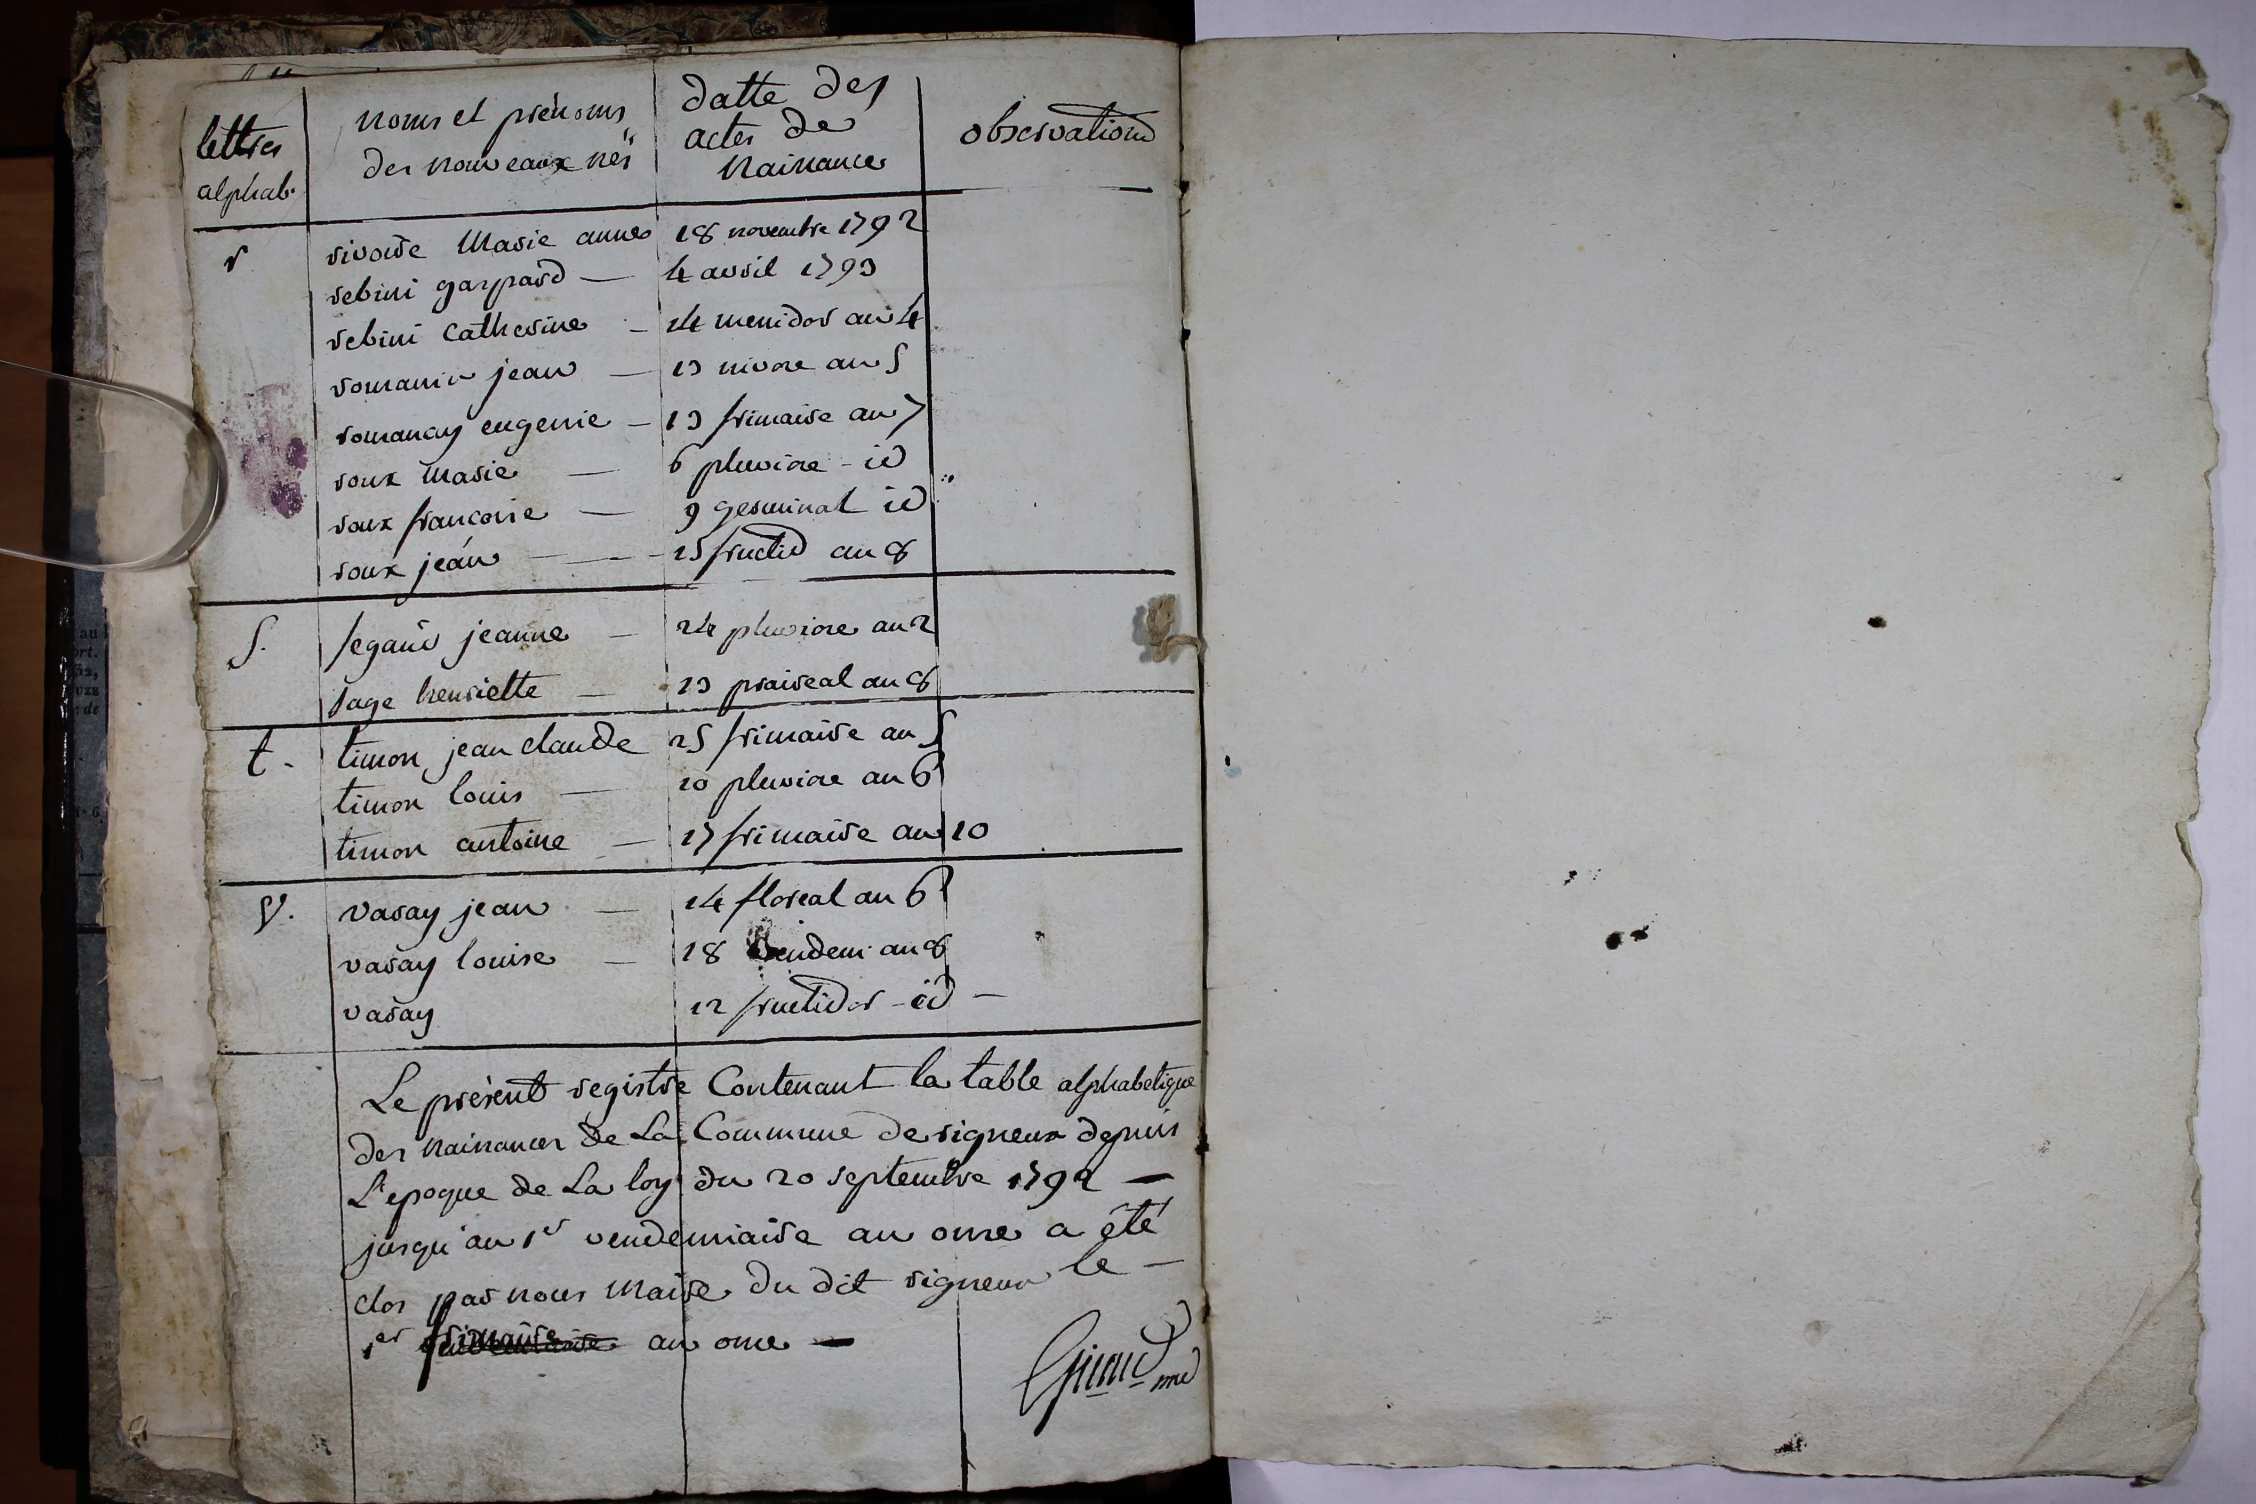 lettres
alphab.
noms et prénoms
des nouveaux nés
datte des
actes de
naissance
observations
r rivoire Marie anne 18 novembre 1792
rebini gaspard — 4 avril 1793
rebini Catherine — 14 messidor an 4
romanin jean — 13 nivose an 5
romancy eugenie — 13 frimaire an 7
roux Marie — 6 pluviose - id
roux francoise — 9 germinal id
roux jean — 25 fructid an 8
S. segaud jeanne — 24 pluviose an 2
sage henriette — 13 praireal an 8
t. timon jean claude 25 frimaire an 5
timon louis — 10 pluviose an 6
timon antoine — 17 frimaire an 10
V. varay jean — 14 floreal an 6
varay louise — 18 vendem. an 8
varay 12 fructidor - id —
Le présent registre Contenant la table alphabetique
des naissances de La Commune de rigneux depuis
L'epoque de La loy du 20 septembre 1792 —
jusqu'au 1er vendemiaire an onze a été
clos par nous Maire du dit rigneux le —
1er frimaire an onze —